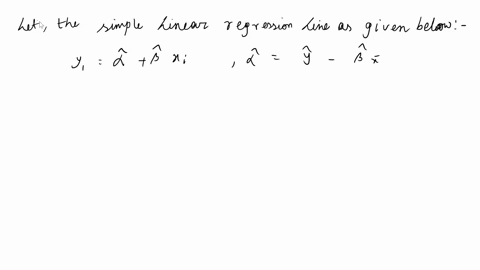 Let, the simple linear regression line as given below:-
y₁ = α̂ + β̂ xᵢ , α̂ = ŷ - β̂ x̄